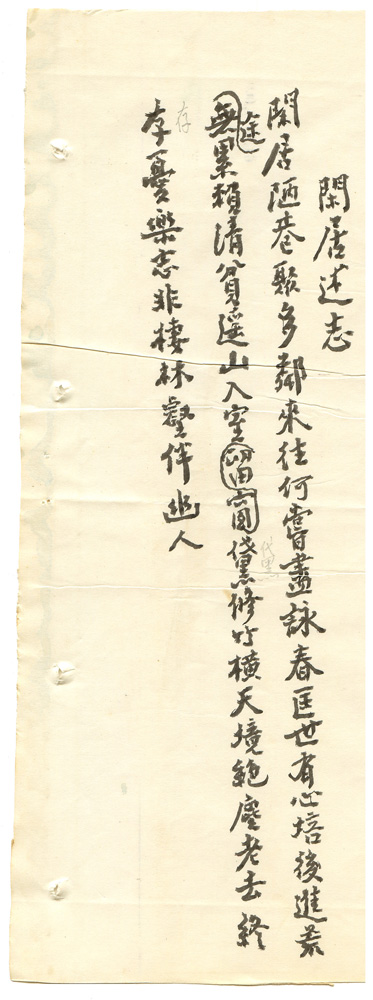 閑居述志
閑居陋巷聚多鄰來往何嘗盡詠春匡世有心培後進
途
無累賴清貧遙山入室留窗黛修竹橫天境絕塵老去終
黛
存憂樂志非棲林壑伴幽人
存